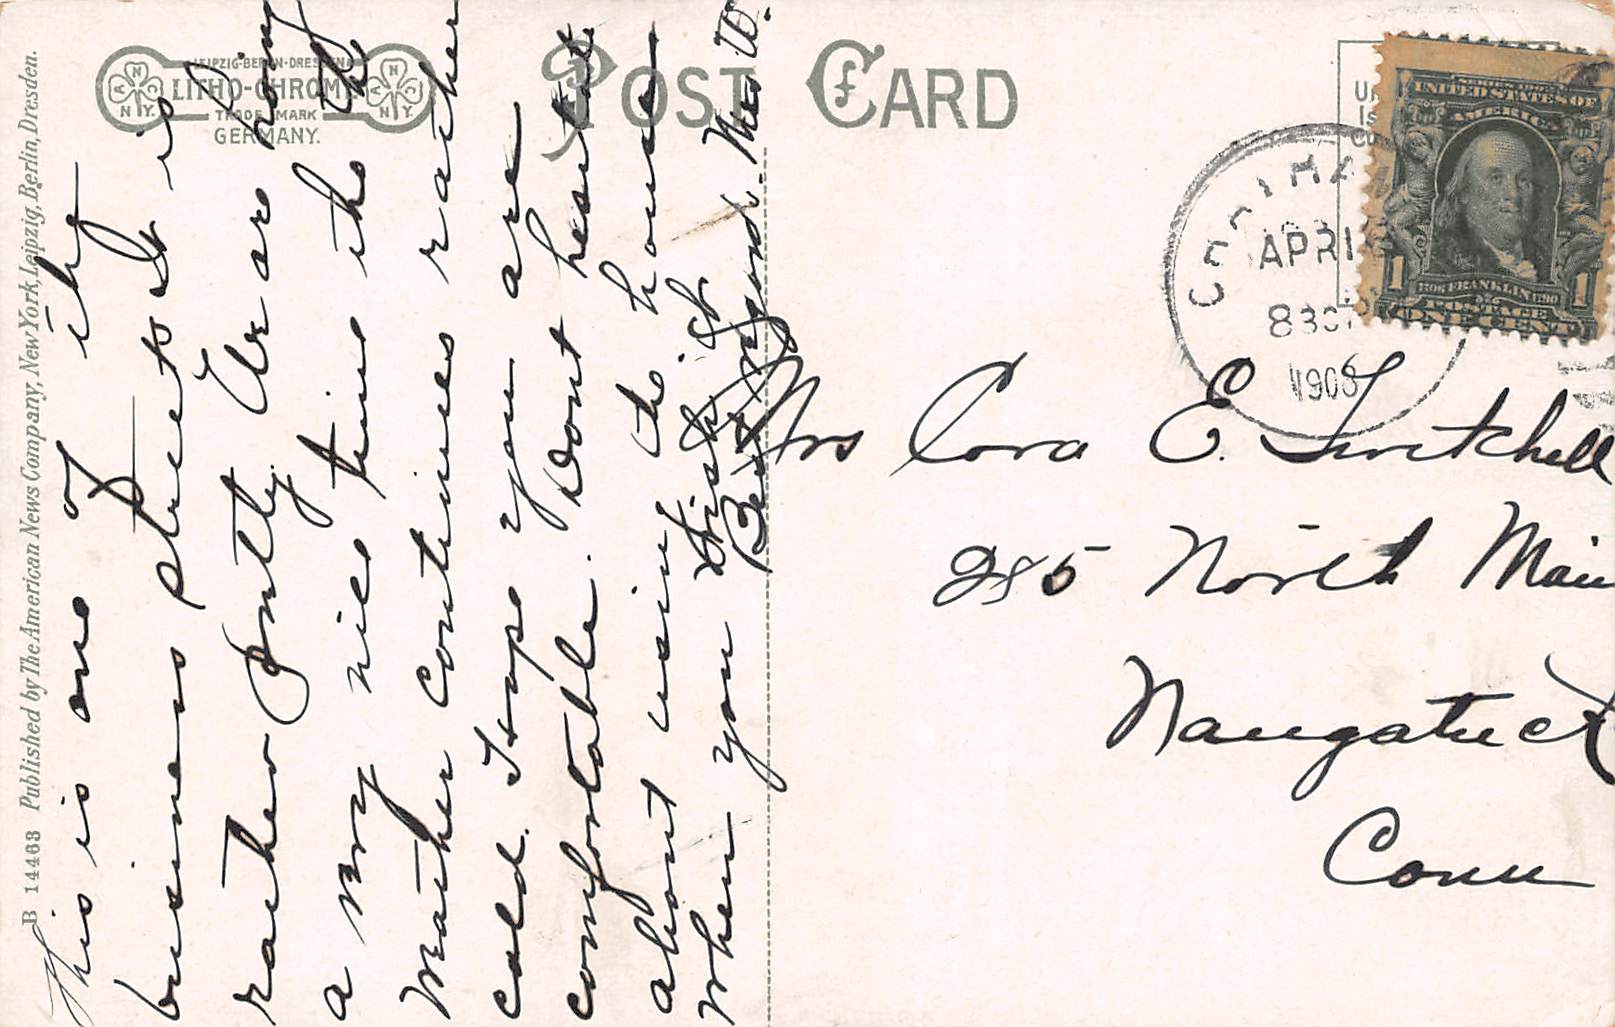 B 14463 Published by The American News Company, New York, Leipzig, Berlin, Dresden.
LEIPZIG-BERLIN-DRESDEN
LITHO-CHROME
TRADE MARK
GERMANY.
A N C N.Y.
A N C N.Y.
POST CARD
This is one of the
business streets It is
rather pretty. We are having
a very nice time tho the
weather continues rather
cold. I hope you are
comfortable. Dont hesitate
about using the house
when you wish it
Best regards. Mrs W.
APR 1
830
1908
UNITED STATES OF
AMERICA
1706 FRANKLIN 1790
POSTAGE
1 ONE CENT 1
Mrs Cora E. Twitchell
285 North Main
Naugatuck
Conn